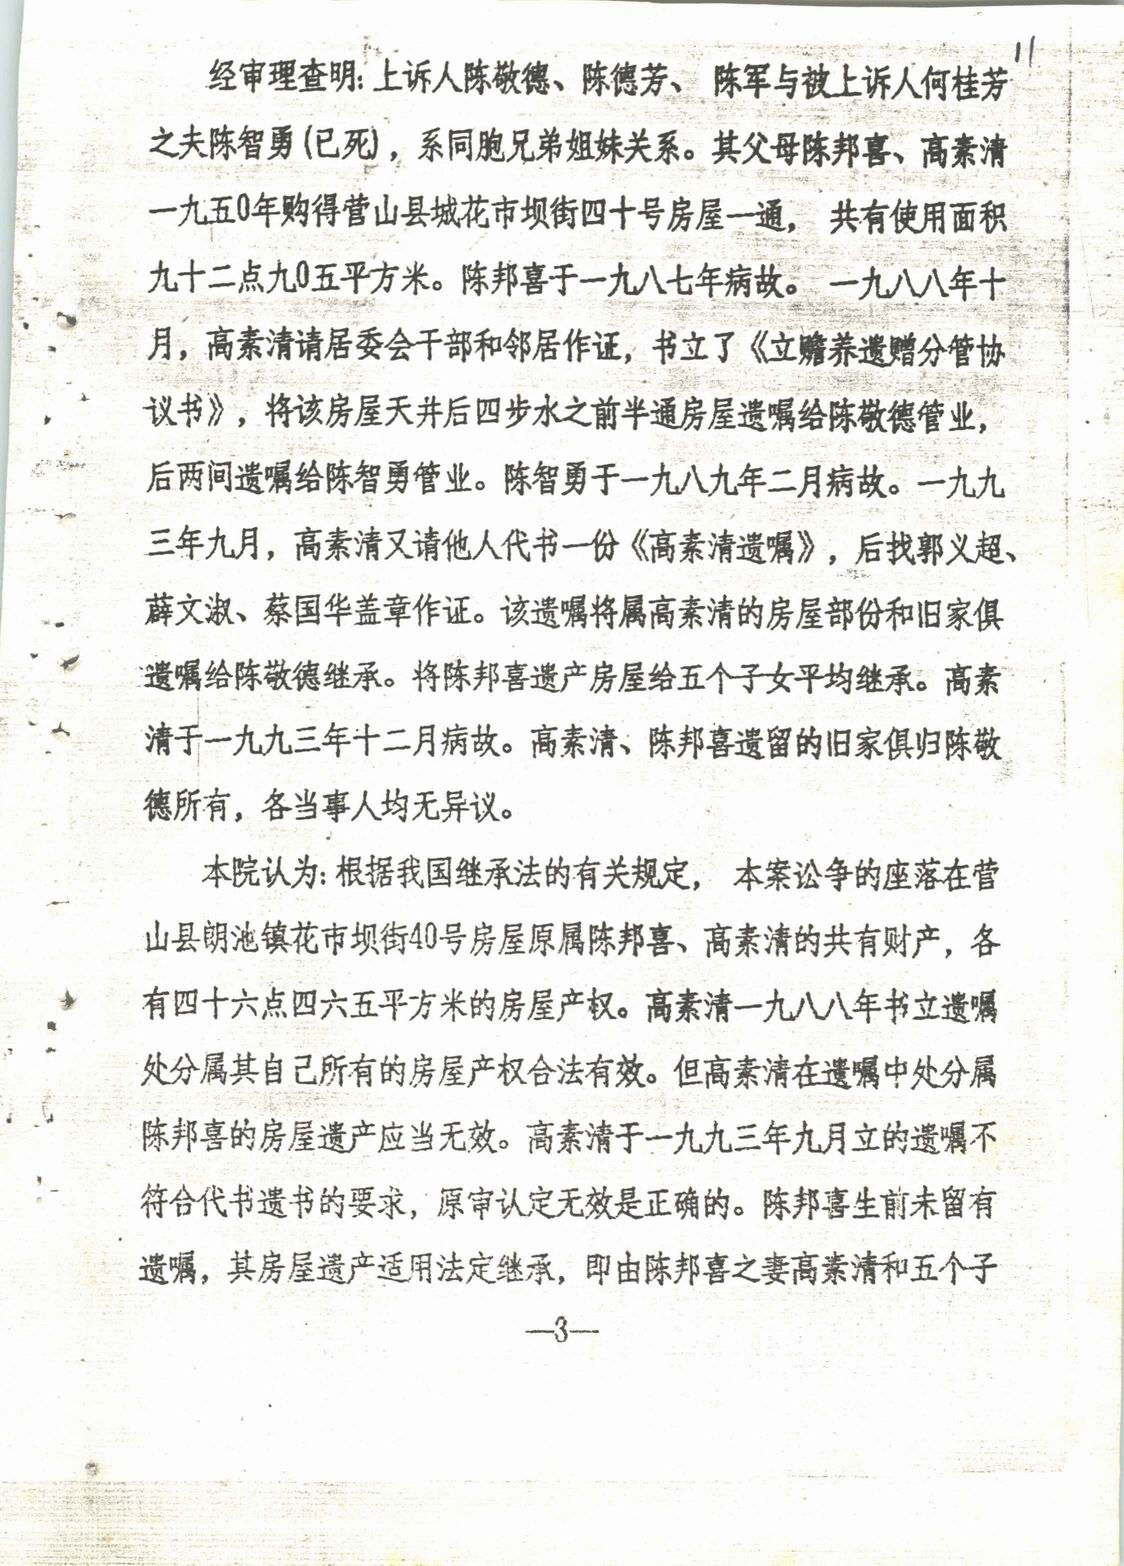 11
经审理查明:上诉人陈敬德、陈德芳、 陈军与被上诉人何桂芳
之夫陈智勇(已死),系同胞兄弟姐妹关系。其父母陈邦喜、高素清
一九五0年购得营山县城花市坝街四十号房屋一通, 共有使用面积
九十二点九0五平方米。陈邦喜于一九八七年病故。 一九八八年十
月,高素清请居委会干部和邻居作证,书立了《立赡养遗赠分管协
议书》,将该房屋天井后四步水之前半通房屋遗嘱给陈敬德管业,
后两间遗嘱给陈智勇管业。陈智勇于一九八九年二月病故。一九九
三年九月,高素清又请他人代书一份《高素清遗嘱》,后找郭义超、
薜文淑、蔡国华盖章作证。该遗嘱将属高素清的房屋部份和旧家俱
遗嘱给陈敬德继承。将陈邦喜遗产房屋给五个子女平均继承。高素
清于一九九三年十二月病故。高素清、陈邦喜遗留的旧家俱归陈敬
德所有,各当事人均无异议。
本院认为:根据我国继承法的有关规定, 本案讼争的座落在营
山县朗池镇花市坝街40号房屋原属陈邦喜、高素清的共有财产,各
有四十六点四六五平方米的房屋产权。高素清一九八八年书立遗嘱
处分属其自己所有的房屋产权合法有效。但高素清在遗嘱中处分属
陈邦喜的房屋遗产应当无效。高素清于一九九三年九月立的遗嘱不
符合代书遗书的要求,原审认定无效是正确的。陈邦喜生前未留有
遗嘱,其房屋遗产适用法定继承,即由陈邦喜之妻高素清和五个子
—3—